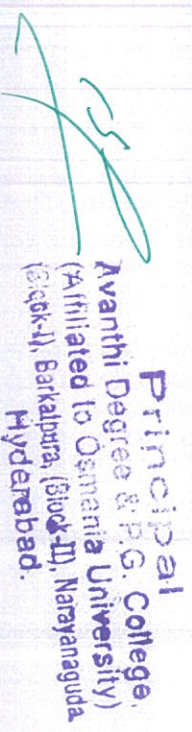 Principal
Avanthi Degree & P.G. College,
(Affiliated to Osmania University)
(Block-I), Barkatpura, (Block-II), Narayanaguda
Hyderabad.